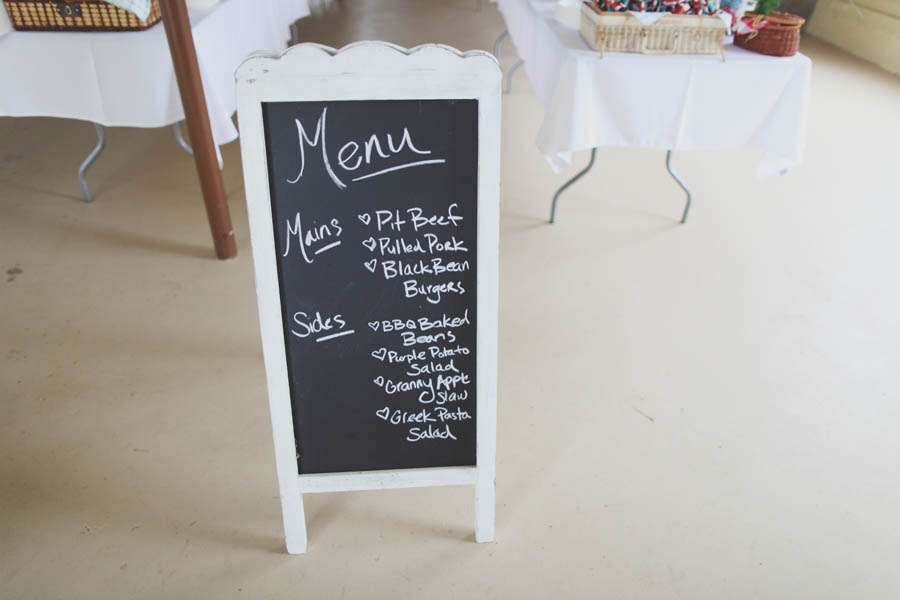 Menu
Mains
Pit Beef
Pulled Pork
Black Bean
Burgers
Sides
BBQ Baked
Beans
Purple Potato
Salad
Granny Apple
Slaw
Greek Pasta
Salad